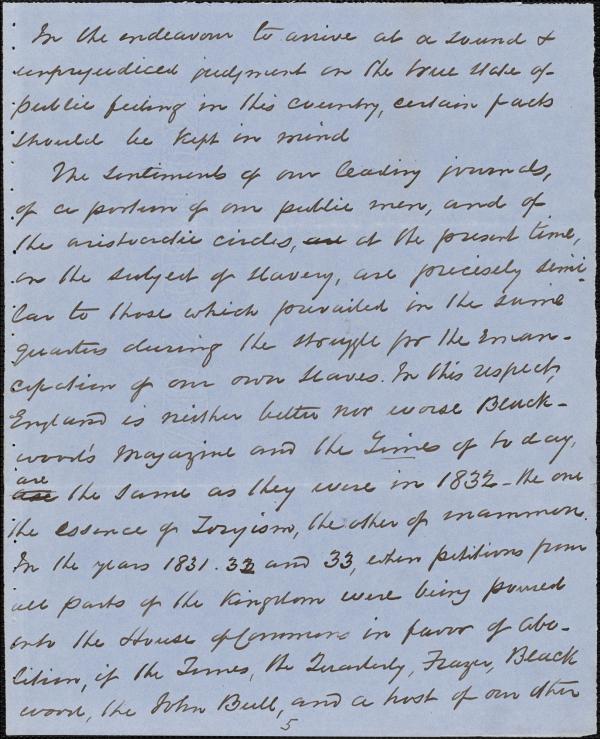 In the endeavour to arrive at a sound &
unprejudiced judgment on the true state of
public feeling in this country, certain facts
should be kept in mind
The sentiments of our leading journals,
of a portion of our public men, and of
the aristocratic circles, are at the present time,
on the subject of slavery, are precisely simi-
lar to those which prevailed in the same
quarters during the struggle for the Eman-
cipation of our own slaves. In this respect,
England is neither better nor worse Black-
wood's Magazine and the Times of to day,
are
are the same as they were in 1832 - the one
the essence of Toryism, the other of mammon.
In the years 1831. 32 and 33, when petitions from
all parts of the Kingdom were being poured
into the House of Commons in favor of abo-
lition, if the Times, the Quarterly, Frazer, Black
wood, the John Bull, and a host of our other
5